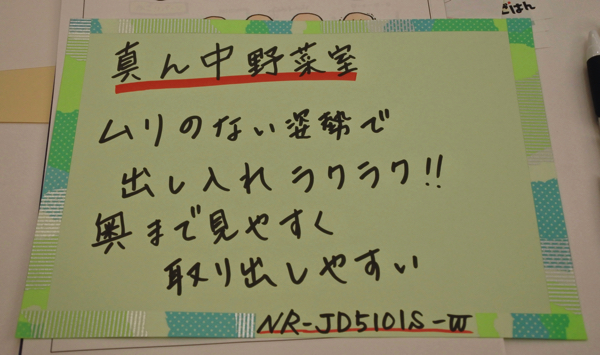 ごはん
真ん中野菜室
ムリのない姿勢で
出し入れラクラク!!
奥まで見やすく
取り出しやすい
NR-JD5101S-W